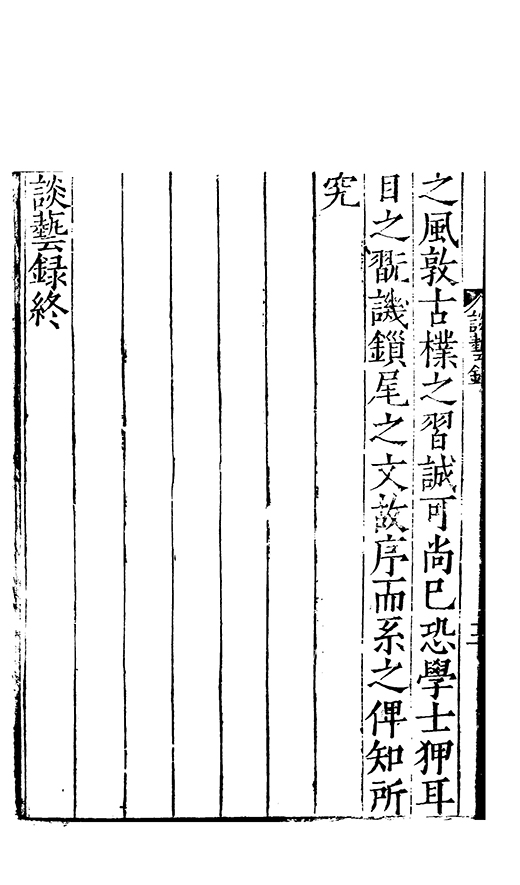 談藝錄
之風敦古樸之習誠可尚已恐學士狎耳
目之翫譏鎖尾之文故序而系之俾知所
究
談藝録終